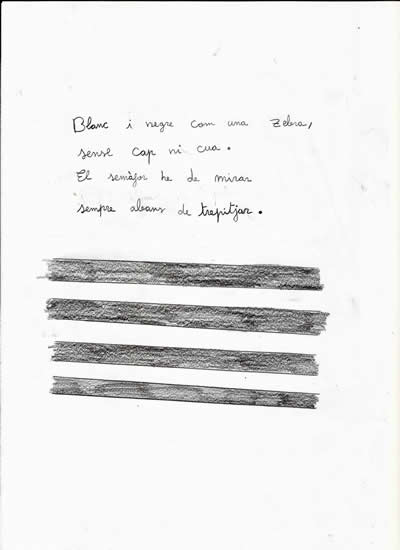 Blanc i negre com una zebra,
sense cap ni cua.
El semàfor he de mirar
sempre abans de trepitjar.